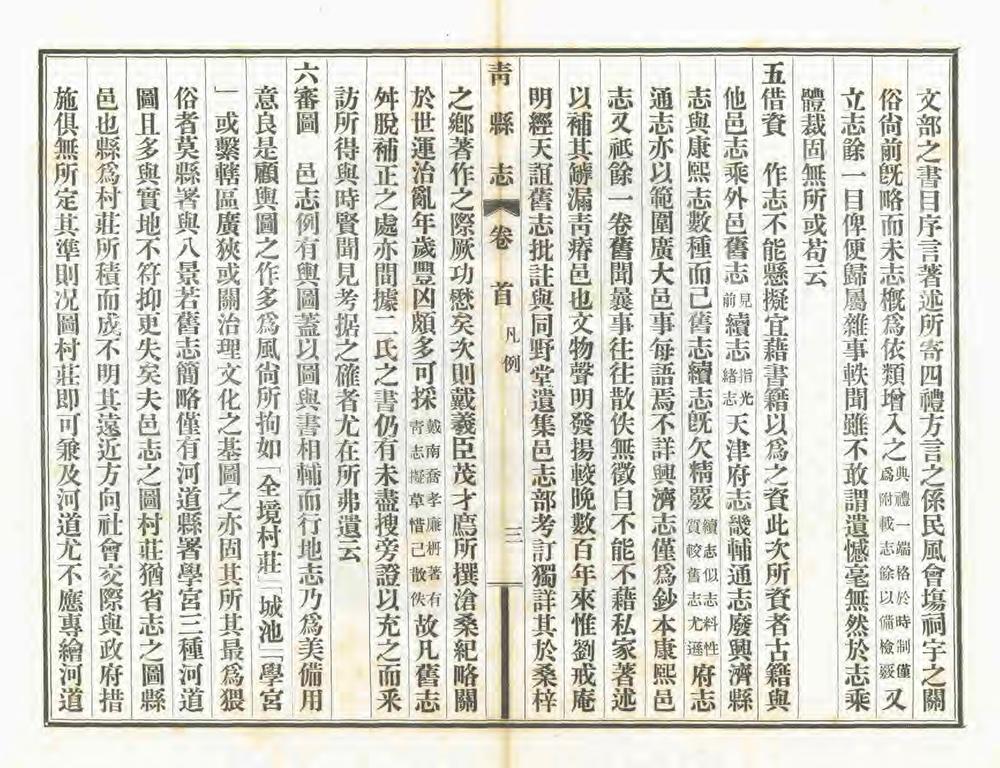 文部之書目序言著述所寄四禮方言之係民風會塲祠宇之關
俗尙前旣略而未志槪爲依類增入之典禮一端格於時制僅爲附載志餘以備檢覈又
立志餘一目俾便歸屬雜事軼聞雖不敢謂遺憾毫無然於志乘
體裁固無所或苟云
五借資　作志不能懸擬宜藉書籍以爲之資此次所資者古籍與
他邑志乘外邑舊志見前續志指光緒志天津府志畿輔通志廢興濟縣
志與康熙志數種而已舊志續志旣欠精覈續志似志料性質較舊志尤遜府志
通志亦以範圍廣大邑事每語焉不詳興濟志僅爲鈔本康熙邑
志又祇餘一卷舊聞曩事往往散佚無徵自不能不藉私家著述
以補其罅漏靑瘠邑也文物聲明發揚較晚數百年來惟劉戒庵
明經天誼舊志批註與同野堂遺集邑志部考訂獨詳其於桑梓
靑縣志　卷首　凡例　三
之鄕著作之際厥功懋矣次則戴羲臣茂才廌所撰滄桑紀略關
於世運治亂年歲豐凶頗多可採戴南喬孝廉枬著有靑志擬草惜已散佚故凡舊志
舛脫補正之處亦間據二氏之書仍有未盡搜旁證以充之而釆
訪所得與時賢聞見考据之確者尤在所弗遺云
六審圖　邑志例有輿圖蓋以圖與書相輔而行地志乃爲美備用
意良是顧輿圖之作多爲風尙所拘如「全境村莊」「城池」「學宮
」或繫轄區廣狹或關治理文化之基圖之亦固其所其最爲猥
俗者莫縣署與八景若舊志簡略僅有河道縣署學宮三種河道
圖且多與實地不符抑更失矣夫邑志之圖村莊猶省志之圖縣
邑也縣爲村莊所積而成不明其遠近方向社會交際與政府措
施俱無所定其準則况圖村莊即可兼及河道尤不應專繪河道